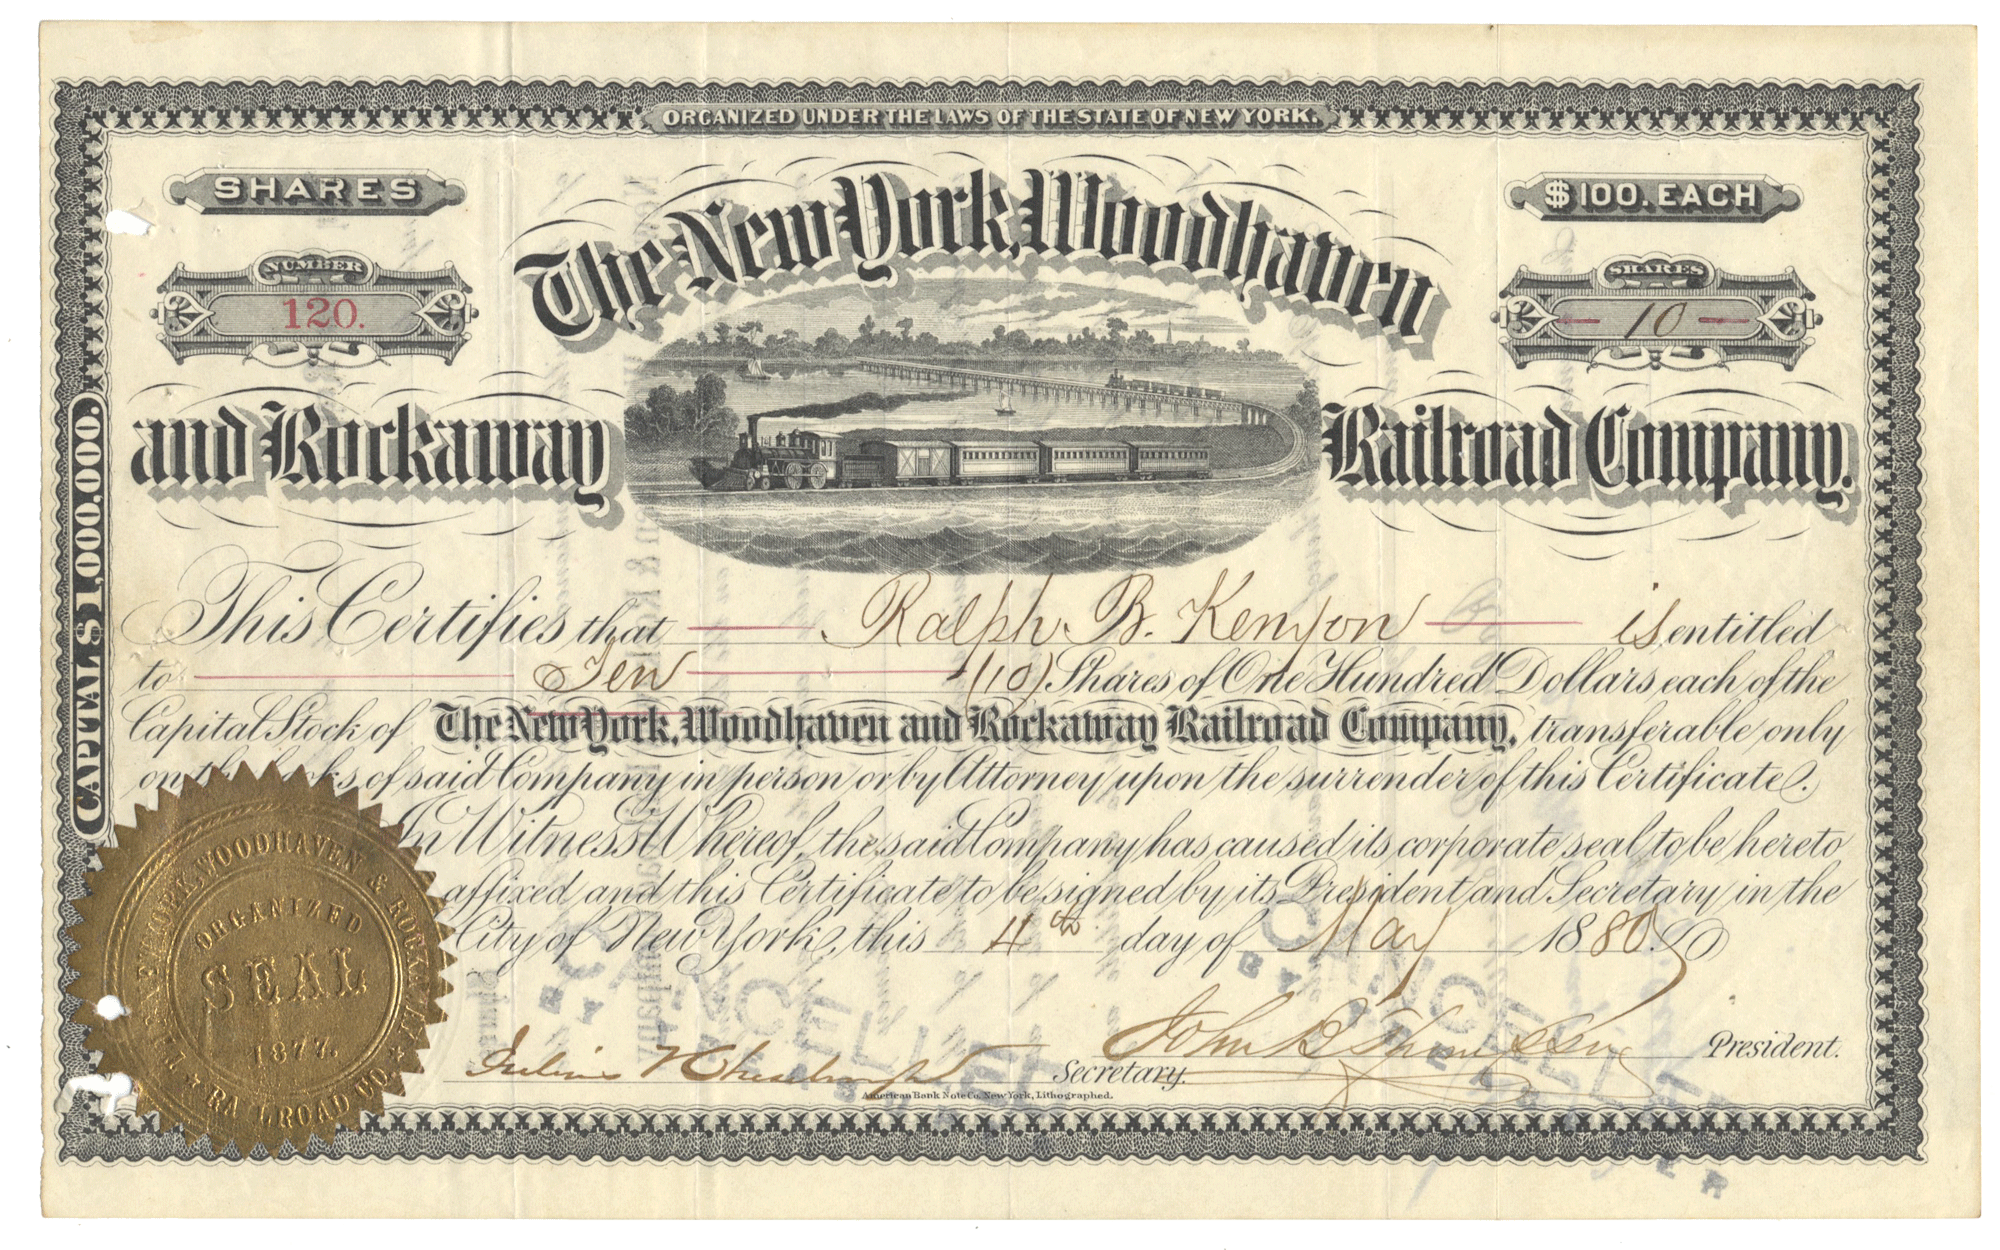 ORGANIZED UNDER THE LAWS OF THE STATE OF NEW YORK.
SHARES
$100. EACH
NUMBER
120.
SHARES
10
The New York, Woodhaven
and Rockaway Railroad Company.
CAPITAL $1,000,000.
This Certifies that Ralph B. Kenyon is entitled
to Ten (10) Shares of One Hundred Dollars each of the
Capital Stock of The New York, Woodhaven and Rockaway Railroad Company, transferable only
on the books of said Company in person or by Attorney upon the surrender of this Certificate.
In Witness Whereof, the said Company has caused its corporate seal to be hereto
affixed and this Certificate to be signed by its President and Secretary in the
City of New York, this 4th day of May 1880.
THE NEW YORK, WOODHAVEN & ROCKAWAY RAILROAD CO.
ORGANIZED
SEAL
1877.
CANCELLED
CANCELLED
John B
President.
Julius
Secretary.
American Bank Note Co. New York, Lithographed.